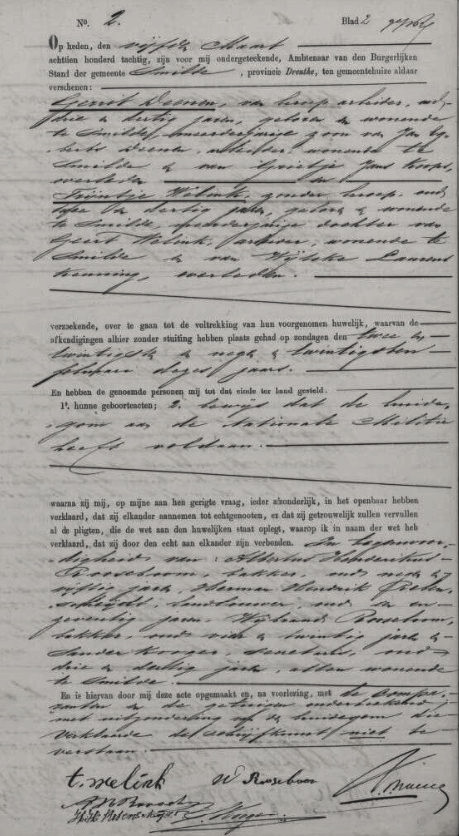 No. 2. Blad 2
Op heden, den vijfde Maart
achttien honderd tachtig, zijn voor mij ondergeteekende, Ambtenaar van den Burgerlijken
Stand der gemeente Smilde, provincie Drenthe, ten gemeentehuize aldaar
verschenen:
Gerrit , van beroep arbeider, oud
drie en dertig jaren, geboren en wonende
te Smilde, meerderjarige zoon van Jan
arbeider, wonende te
Smilde en van Grietje Jans Koops,
overleden en
Trijntje Welink, zonder beroep, oud
dertig jaren, geboren en wonende
te Smilde, meerderjarige dochter van
Geert Welink, arbeider, wonende te
Smilde en van Wijtske Laurens
Kenning, overleden.
verzoekende, over te gaan tot de voltrekking van hun voorgenomen huwelijk, waarvan de
afkondigingen alhier zonder stuiting hebben plaats gehad op zondagen den twee en
twintigste en negen en twintigsten
februari dezes jaars.
En hebben de genoemde personen mij tot dat einde ter hand gesteld:
1º. hunne geboorteacten; 2. bewijs dat de bruide-
gom aan de Nationale Militie
heeft voldaan.
waarna zij mij, op mijne aan hen gerigte vraag, ieder afzonderlijk, in het openbaar hebben
verklaard, dat zij elkander aannemen tot echtgenooten, en dat zij getrouwelijk zullen vervullen
al de pligten, die de wet aan den huwelijken staat oplegt, waarop ik in naam der wet heb
verklaard, dat zij door den echt aan elkander zijn verbonden. In tegenwoor-
digheid van: Albertus Henderikus
Rooseboom, bakker, oud negen en
vijftig jaren, Herman Hendrik
landbouwer, oud een en
zeventig jaren, Wijbrand Rooseboom,
bakker, oud vier en twintig jaren en
Sander Kooger, oud
drie en dertig jaren, allen wonende
te Smilde.
En is hiervan door mij deze acte opgemaakt en, na voorlezing, met de compa-
ranten en de getuigen onderteekend,
met uitzondering van den bruidegom die
verklaarde de schrijfkunst niet te
verstaan.
t. welink W Rooseboom